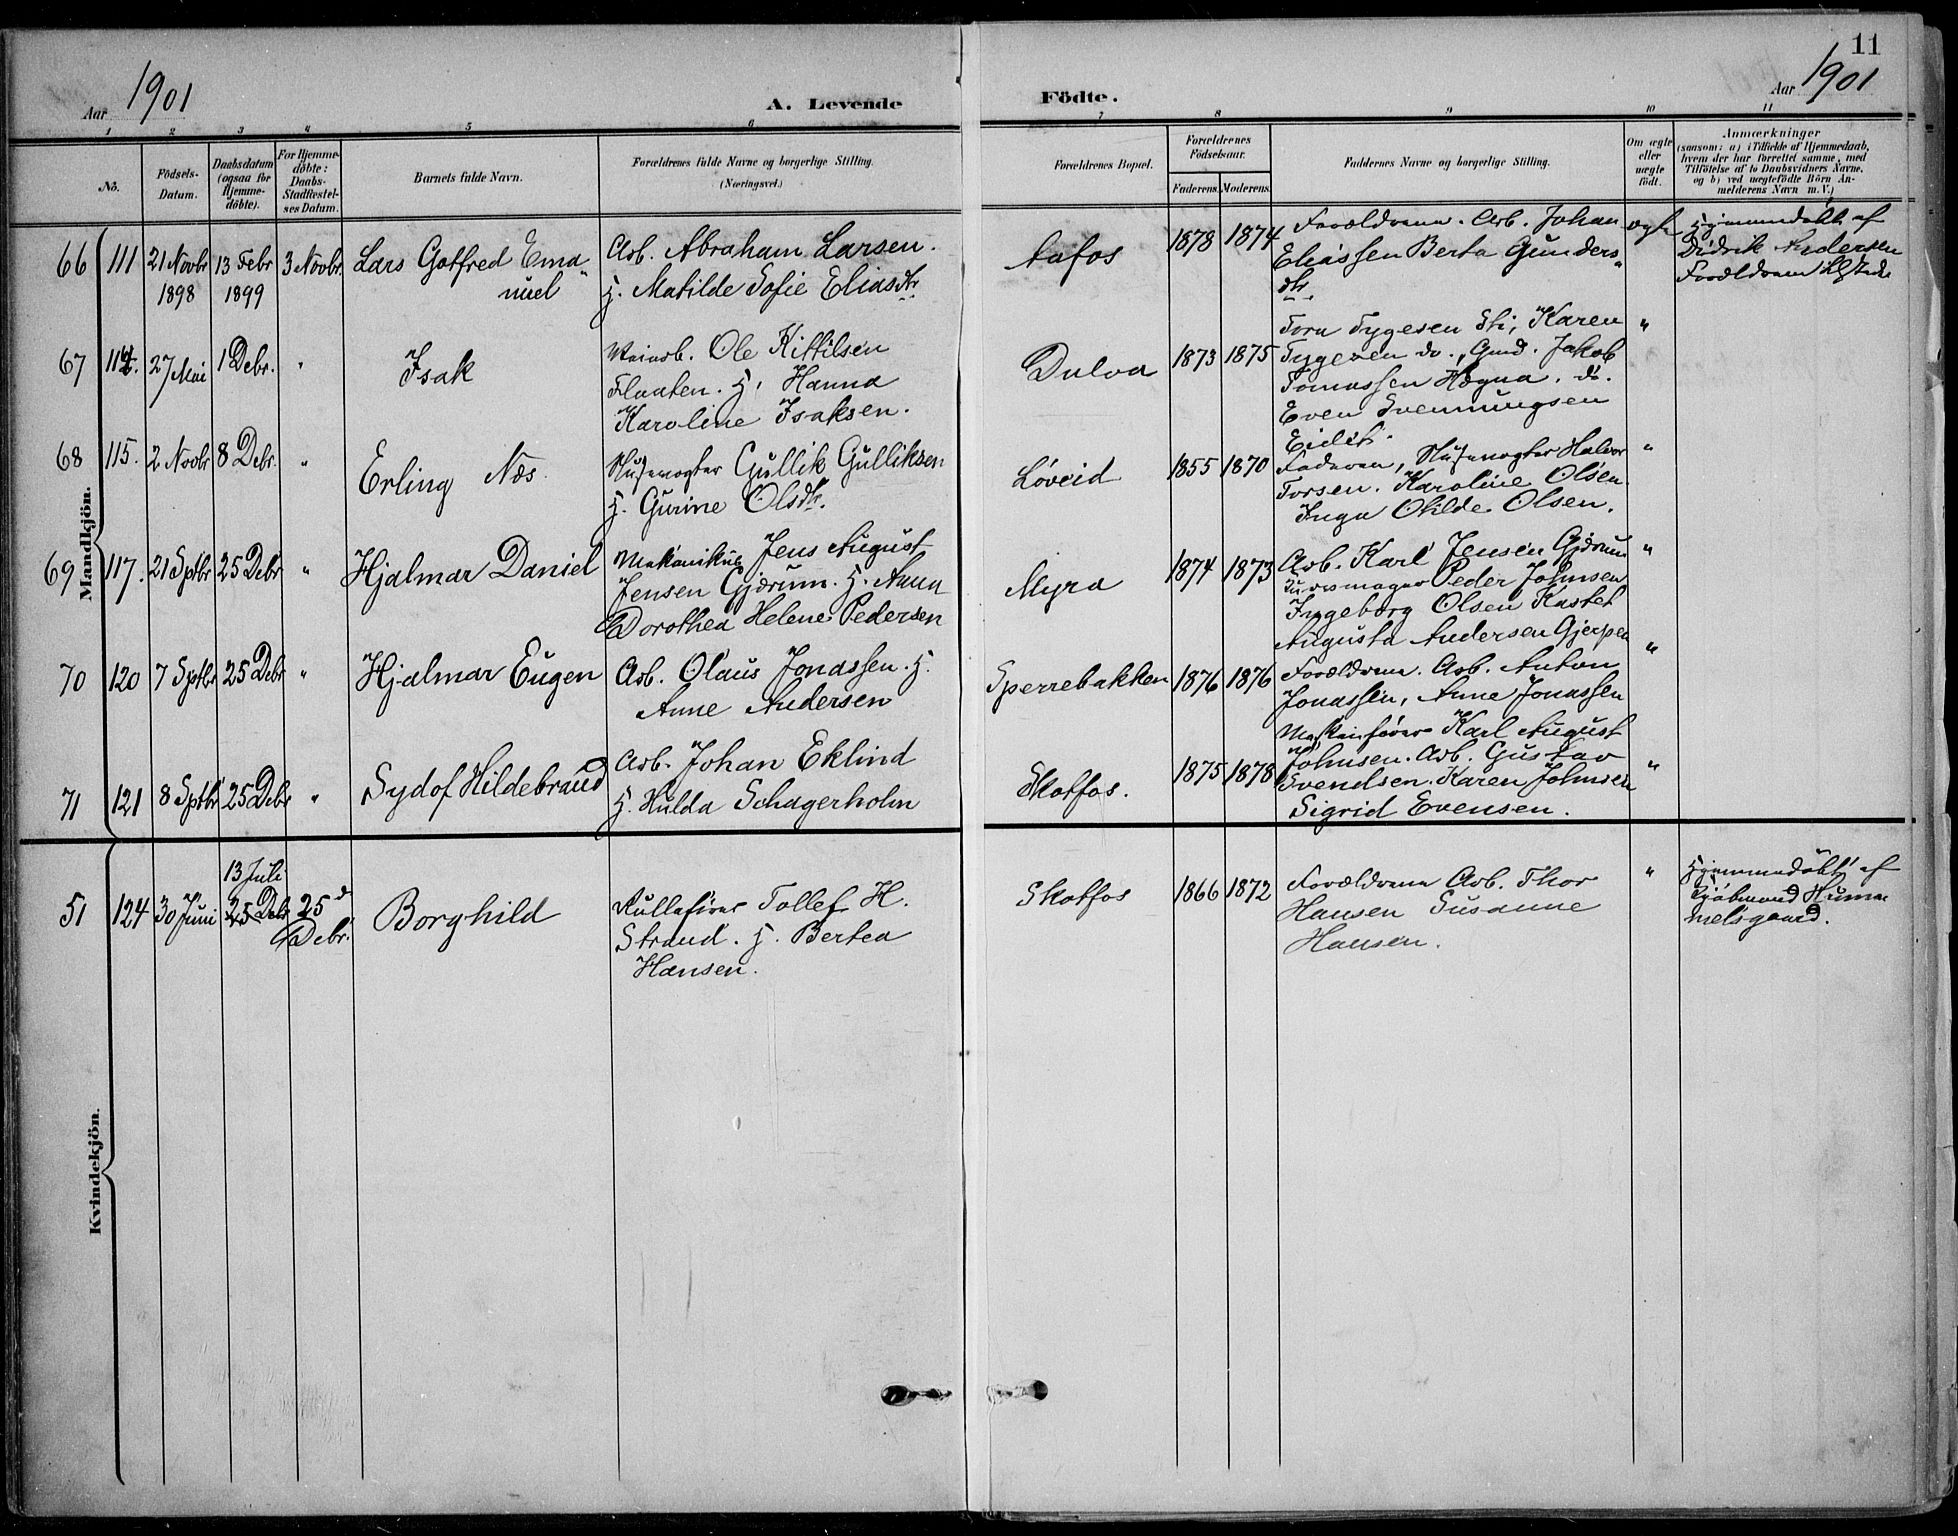 11
Aar 1901
A. Levende Födte.
Aar 1901
1 2 3 4 5 6 7 8 9 10 11
No.
Födsels-
Datum.
Daabsdatum
(ogsaa for
Hjemme-
döbte).
For Hjemme-
döbte:
Daabs-
Stadfæstel-
ses Datum.
Barnets fulde Navn.
Forældrenes fulde Navne og borgerlige Stilling.
(Næringsvei.)
Forældrenes Bopæl.
Forældrenes
Födselsaar.
Faderens. Moderens.
Faddernes Navne og borgerlige Stilling.
Om ægte
eller
uægte
födt.
Anmærkninger
(saasom: a) i Tilfælde af Hjemmedaab,
hvem der har forrettet samme, med
Tilföielse af to Daabsvidners Navne,
og b) ved uægtefödte Börn An-
melderens Navn m. V.)
Mandkjön.
66 111 21 Novbr 1898
13 Febr 1899
3 Novbr.
Lars Gotfred Ema
nuel
Arb. Abraham Larsen.
H. Matilde Sofie Eliasdtr
Aafos
1878 1874
Forældrene. Arb. Johan
Eliassen Berta Gunders
dtr.
ægte
Hjemmedöbt af
Didrik Andersen
Forældrene tilstede
67 114. 27 Mai 1 Debr. "
Isak
Ole Kittilsen
Flaaten. H. Hanna
Karoline Isaksen.
Dulva
1873 1875
Tora Tygesen Sti, Karen
Tygesen do., Gmd. Jakob
Tomassen Hægna. do.
Even Svennungsen
"
68 115. 2 Novbr 8 Debr. "
Erling Næs.
Slusevogter Gullik Gulliksen
H. Gurine Olsdtr.
Löveid
1855 1870
Faderen, Slusevogter Halvor
Torsen. Karoline Olsen
Inga Olsen.
"
69 117. 21 Sptbr 25 Debr "
Hjalmar Daniel
Mekanikus Jens August
Jensen Gjærum. H. Anna
Dorothea Helene Pedersen
Myra
1874 1873
Arb. Karl Jensen Gjærum
Peder Johnsen
Ingeborg Olsen Kastet
Augusta Andersen Gjerpen
"
70 120 7 Sptbr 25 Debr "
Hjalmar Eugen
Arb. Olaus Jonassen. H.
Anne Andersen
Sperrebakken
1876 1876
Forældrene. Arb. Anton
Jonassen, Anne Jonassen
"
71 121 8 Sptbr 25 Debr "
Sydof Hildebrand
Arb. Johan Eklind
H. Hulda Schagerholm
Skotfos.
1875 1878
Maskinförer Karl August
Johnsen. Arb. Gustav
Svendsen. Karen Johnsen
Sigrid Evensen.
"
Kvindekjön.
51 124 30 Juni
13 Juli
25 Debr
25 d
Debr.
Borghild
Rulleförer Tollef H.
Strand. H. Bertea
Hansen.
Skotfos
1866 1872
Forældrene Arb. Thor
Hansen Susanne
Hansen.
"
Hjemmedöbt af
Kjöbmand Humm
melsgaard.